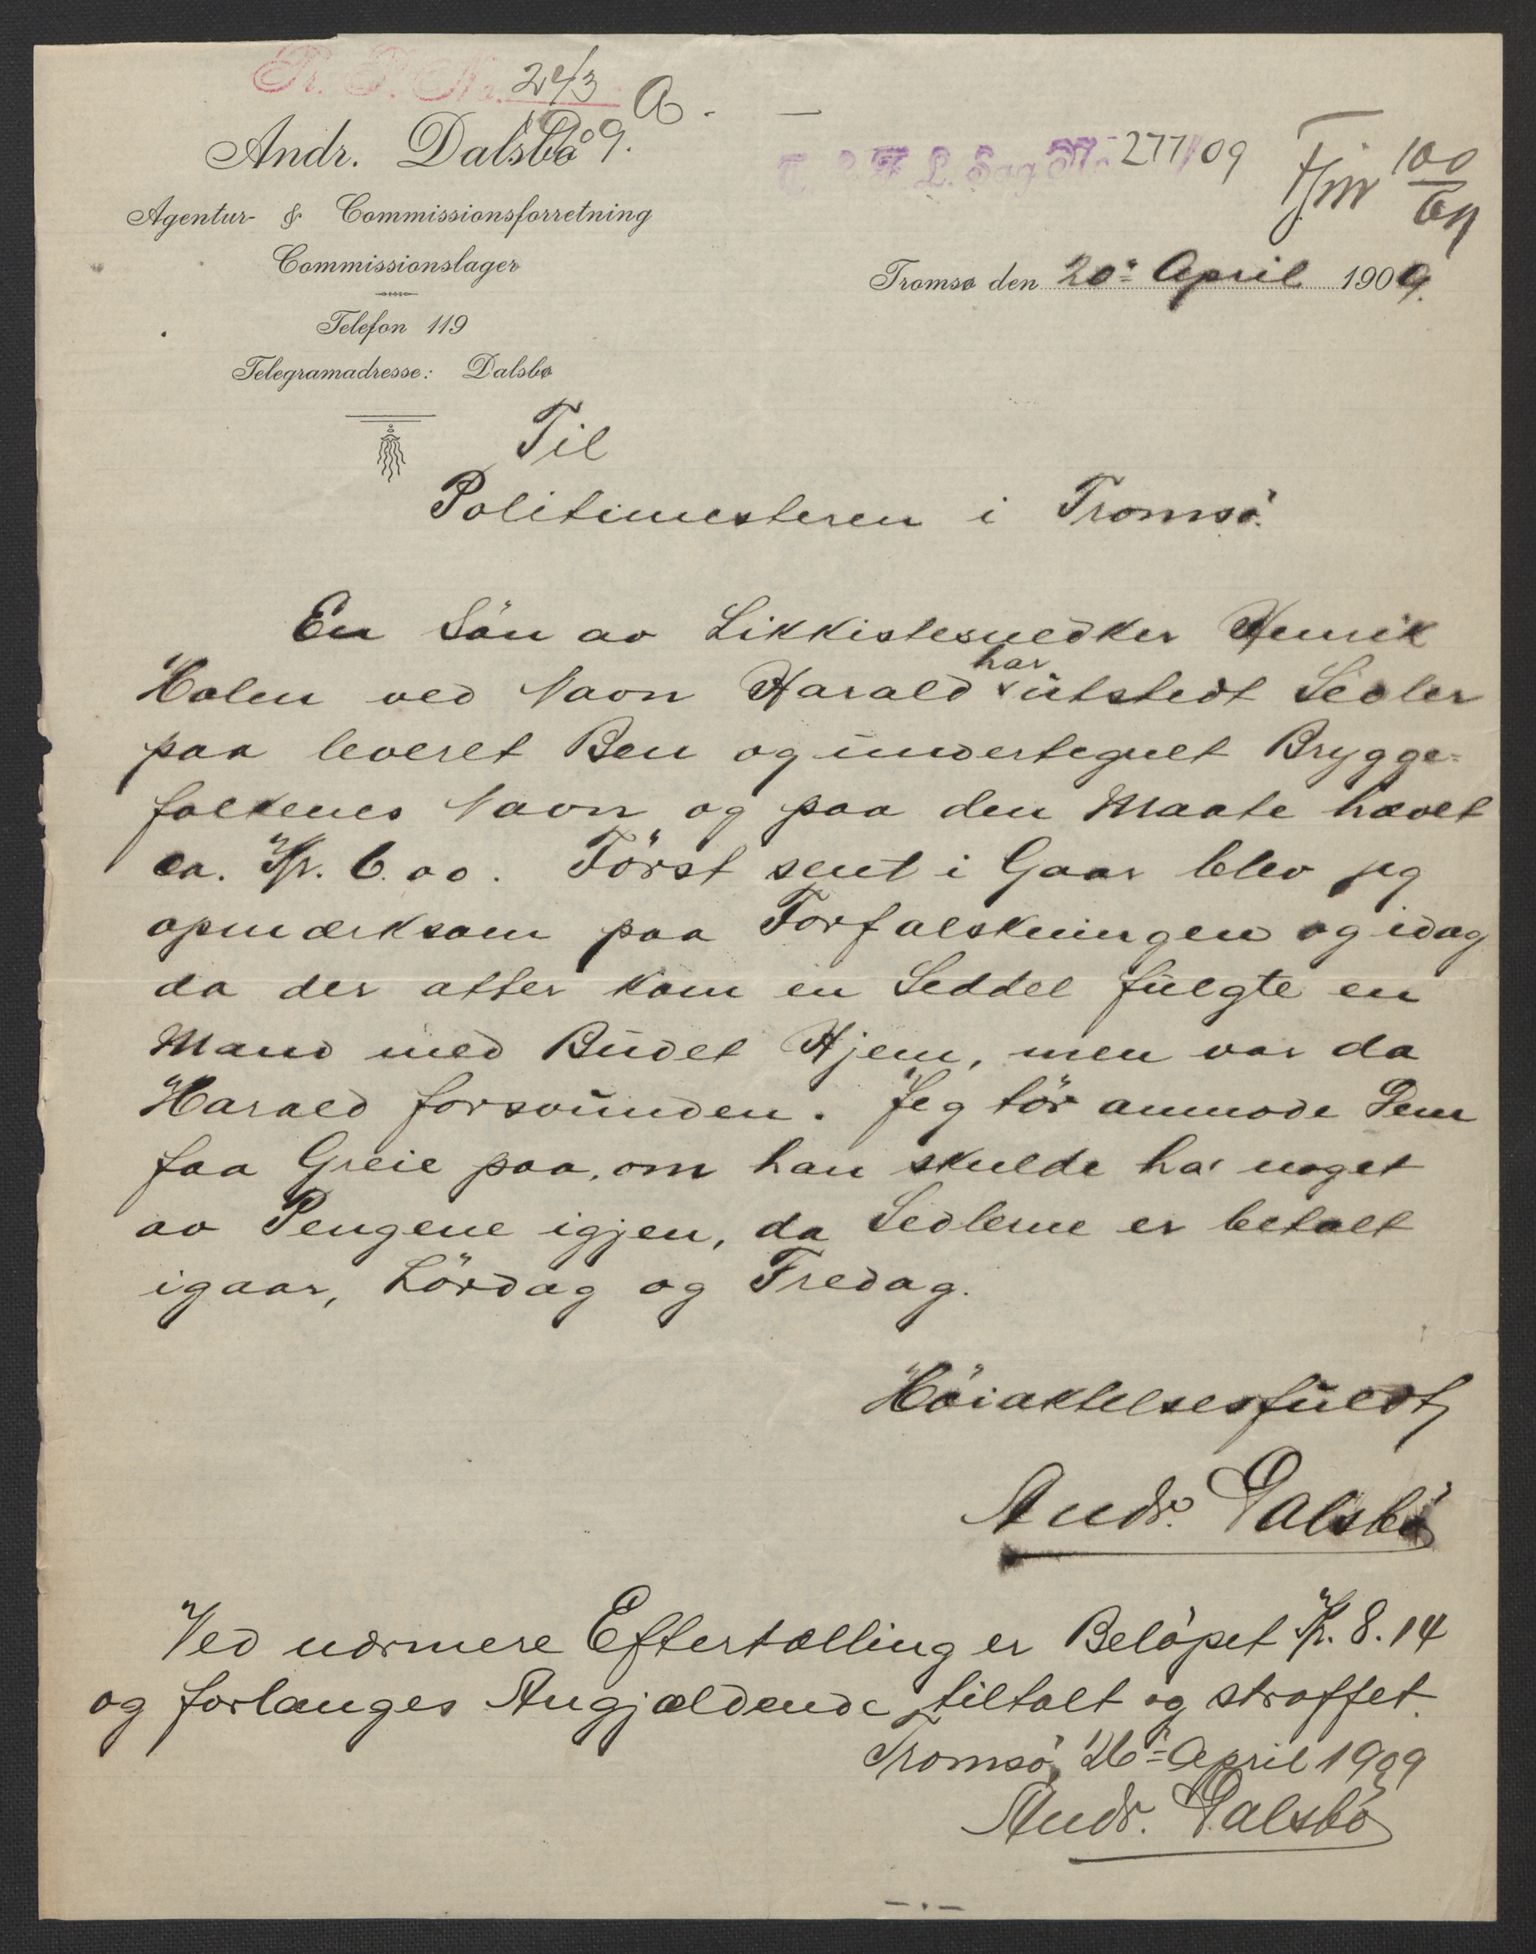 Andr. Dalsbø
Agentur- & Commissionsforretning
Commissionslager
Telefon 119
Telegramadresse: Dalsbø
L. Sag No 277/09
Tromsø den 20de April 1909.
Til
Politimesteren i Tromsö.
En Sön av Likkistesnedker Henrik
Holm ved Navn Harald har utstedt Sedler
paa leveret Ben og undertegnet Brygge-
folkenes Navn og paa den Maate hævet
ca. Kr. 6.00. Först sent i Gaar blev jeg
opmærksom paa Forfalskningen og idag
da der atter kom en Seddel fulgte en
Mand med Budet Hjem, men var da
Harald forsvunden. Jeg tör anmode Dem
faa Greie paa, om han skulde ha noget
av Pengene igjen, da Sedlerne er betalt
igaar, Lördag og Fredag.
Höiaktelsesfuldt
Andr. Dalsbö
Ved nærmere Eftertælling er Belöpet Kr. 8.14
og forlanges Angjældende tiltalt og straffet.
Tromsö, 26de April 1909
Andr. Dalsbö